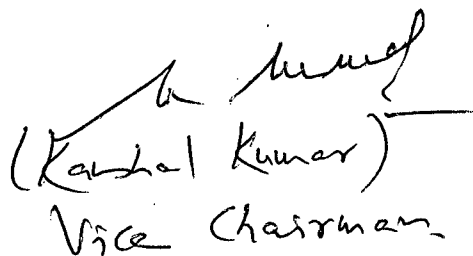 (Kaushal Kumar)
Vice Chairman